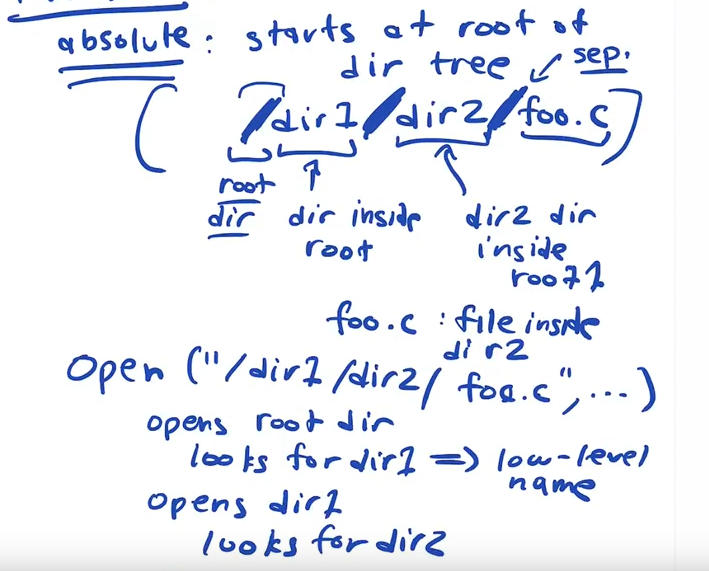 absolute: starts at root of
dir tree
sep.
/dir1/dir2/foo.c
root
dir
dir inside
root
dir2 dir
inside
root1
foo.c : file inside
dir2
Open ("/dir1/dir2/ foo.c", ...)
opens root dir
looks for dir1 => low-level
name
opens dir1
looks for dir2